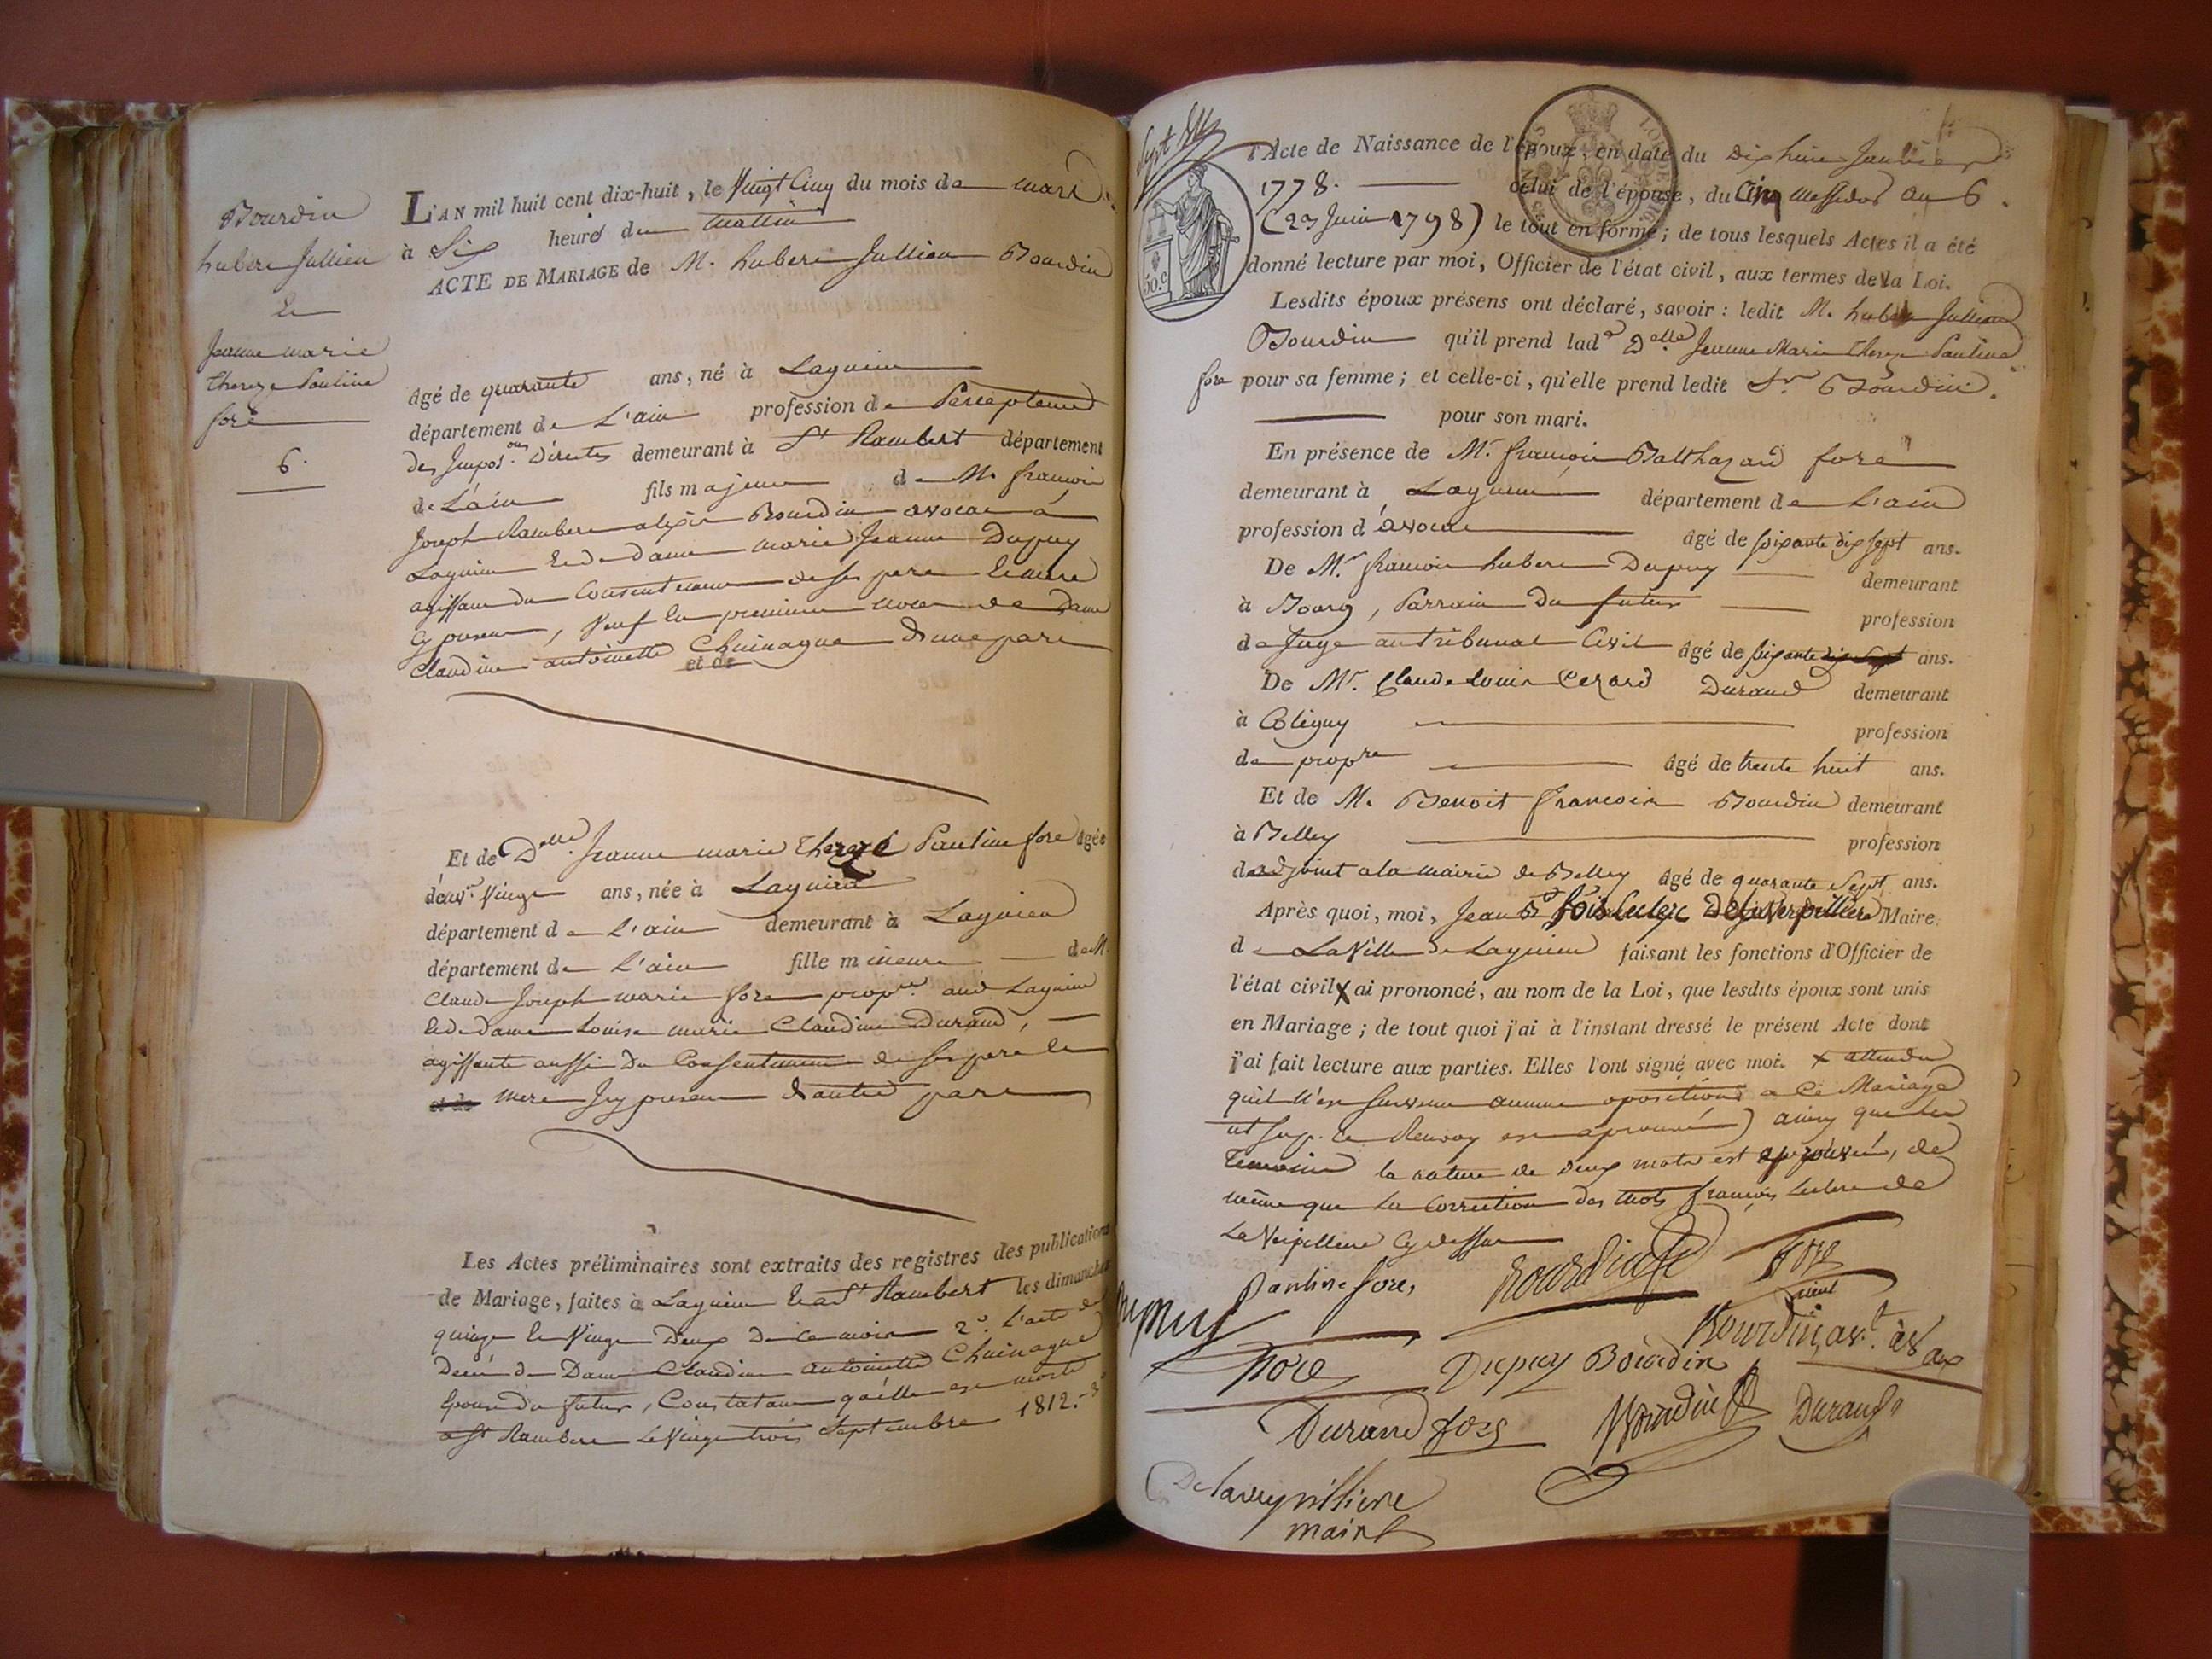 Bourdin
hubert Jullien
Et
Jeanne marie
thereze Pauline
foré
6.
L'AN mil huit cent dix-huit, le Vingt Cinq du mois de mars
à Six heures du mattin
ACTE DE MARIAGE de M. hubert Jullien Bourdin
âgé de quarante ans, né à Lagnieu
département de L'ain profession de Percepteur
des Impos.ons Directes demeurant à St Rambert département
de L'ain fils majeur de M. francois
Joseph Rambert alexis Bourdin avocat à
Lagnieu et de dame marie Jeanne Dupuy
agissant du Consentement de ses pere et mere
Cy presens, Veuf en premieres noces de Dame
Claudine antoinette Chuinague d'une part
et de
Et de Delle Jeanne marie thereze Pauline foré âgée
de Vingt ans, née à Lagnieu
département de L'ain demeurant à Lagnieu
département de L'ain fille mineure de M.
Claude Joseph marie foré propre aud Lagnieu
et de dame Louise marie Claudine Durand,
agissante aussi du Consentement de ses pere et
et de mere Icy presens d'autre part
Les Actes préliminaires sont extraits des registres des publications
de Mariage, faites à Lagnieu et a St Rambert les dimanches
quinze et Vingt Deux de ce mois 2o. L'acte de
decés de Dame Claudine antoinette Chuinague
Epouse du futur, Constatant qu'elle est morte
a St Rambert le Vingt trois Septembre 1812. 3o
l'Acte de Naissance de l'époux, en date du dix huit Janvier
1778. celui de l'épouse, du Cinq messidor an 6.
(23 Juin 1798) le tout en forme; de tous lesquels Actes il a été
donné lecture par moi, Officier de l'état civil, aux termes de la Loi.
50.c
Lesdits époux présens ont déclaré, savoir: ledit M. hubert Jullien
Bourdin qu'il prend lade Delle Jeanne Marie thereze Pauline
foré pour sa femme; et celle-ci, qu'elle prend ledit Sr. Bourdin.
pour son mari.
En présence de Mr. francois Balthazard foré
demeurant à Lagnieu département de L'ain
profession d'avocat âgé de soixante dix sept ans.
De Mr. francois hubert Dupuy demeurant
à Bourg, Parrain du futur profession
de Juge au tribunal Civil âgé de soixante dix Sept ans.
De Mr. Claude Louis Cezard Durand demeurant
à Coligny profession
de propre âgé de trente huit ans.
Et de M. Benoit francois Bourdin demeurant
à Belley profession
d'adjoint a la mairie de Belley âgé de quarante Sept ans.
Après quoi, moi, Jean Bte fois Leclerc Delaverpilliere Maire
de La Ville de Lagnieu faisant les fonctions d'Officier de
l'état civil x ai prononcé, au nom de la Loi, que lesdits époux sont unis
en Mariage; de tout quoi j'ai à l'instant dressé le présent Acte dont
j'ai fait lecture aux parties. Elles l'ont signé avec moi. x attendu
quil n'est survenu aucune oposition a ce Mariage
ut sup. le Renvoy est aprouvé) ainsy que les
temoins la rature de deux mots est approuvée, de
même que la Correction des mots françois Leclerc de
La Verpilliere Cy dessus
Pauline foré, Bourdin foré
Dupuy Bourdin, avt.
foré Dupuy Bourdin
Durand foré Bourdin Durand
Delaverpilliere
maire